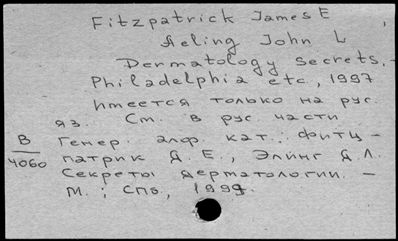 Fitzpatrick James E
Aeling John L
Dermatology secrets. -
Philadelphia etc., 1997
Имеется только на рус.
яз. См. в рус. части
Генер. алф. кат.: Фитц-
В
4060
патрик Д. Е., Элинг Д.Л.
Секреты дерматологии. -
М.; СПб, 1999.